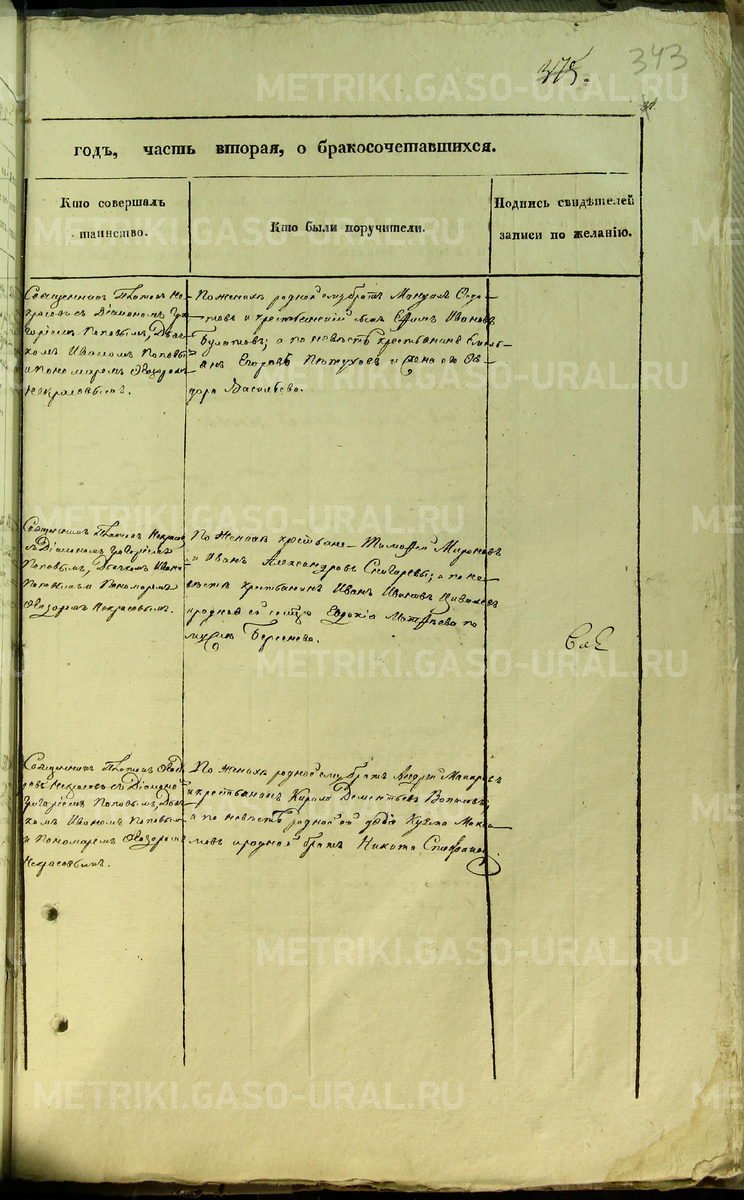 375.
343
METRIKI.GASO-URAL.RU
годъ, часть вторая, о бракосочетавшихся.
Кто совершалъ
таинство.
Кто были поручители.
Подпись свидѣтелей
записи по желанію.
Священникъ Платонъ Не
красовъ съ Діакономъ Гри
горіемъ Поповымъ, Дьяч
комъ Иваномъ Поповы
и пономаремъ Ѳеодоромъ
Некрасовымъ.
По женихѣ родной ему братъ
и крестьянскій сынъ Ефимъ Ивановъ
Булатовъ; а по невѣстѣ крестьянинъ
Егоровъ Пѣтуховъ и жена его Ѳе
дора Васильева.
Священникъ Платонъ Некрасов
съ Діакономъ Григоріемъ
Поповымъ, Дьячкомъ Ивано
Поповымъ и Пономаремъ
Ѳеодоромъ Некрасовымъ.
По женихѣ крестьяне Тимоѳей Мироновъ
и Иванъ Александровъ Снегиревы; а по не
вѣстѣ крестьянинъ Иванъ Ивановъ
и родная ей Евдокія Матѳеева по
мужѣ Берсенева.
Священникъ Платонъ Ѳеодо
ровъ Некрасовъ съ Діакономъ
Григоріемъ Поповымъ, Дьяч
комъ Иваномъ Поповым
и Пономаремъ Ѳеодоромъ
Некрасовымъ.
По женихѣ родной ему братъ Андрей Макаровъ
и крестьянинъ Кирилъ Дементьевъ
а по невѣстѣ родной ей дядя Кузма Макси
мовъ и родной братъ Никита